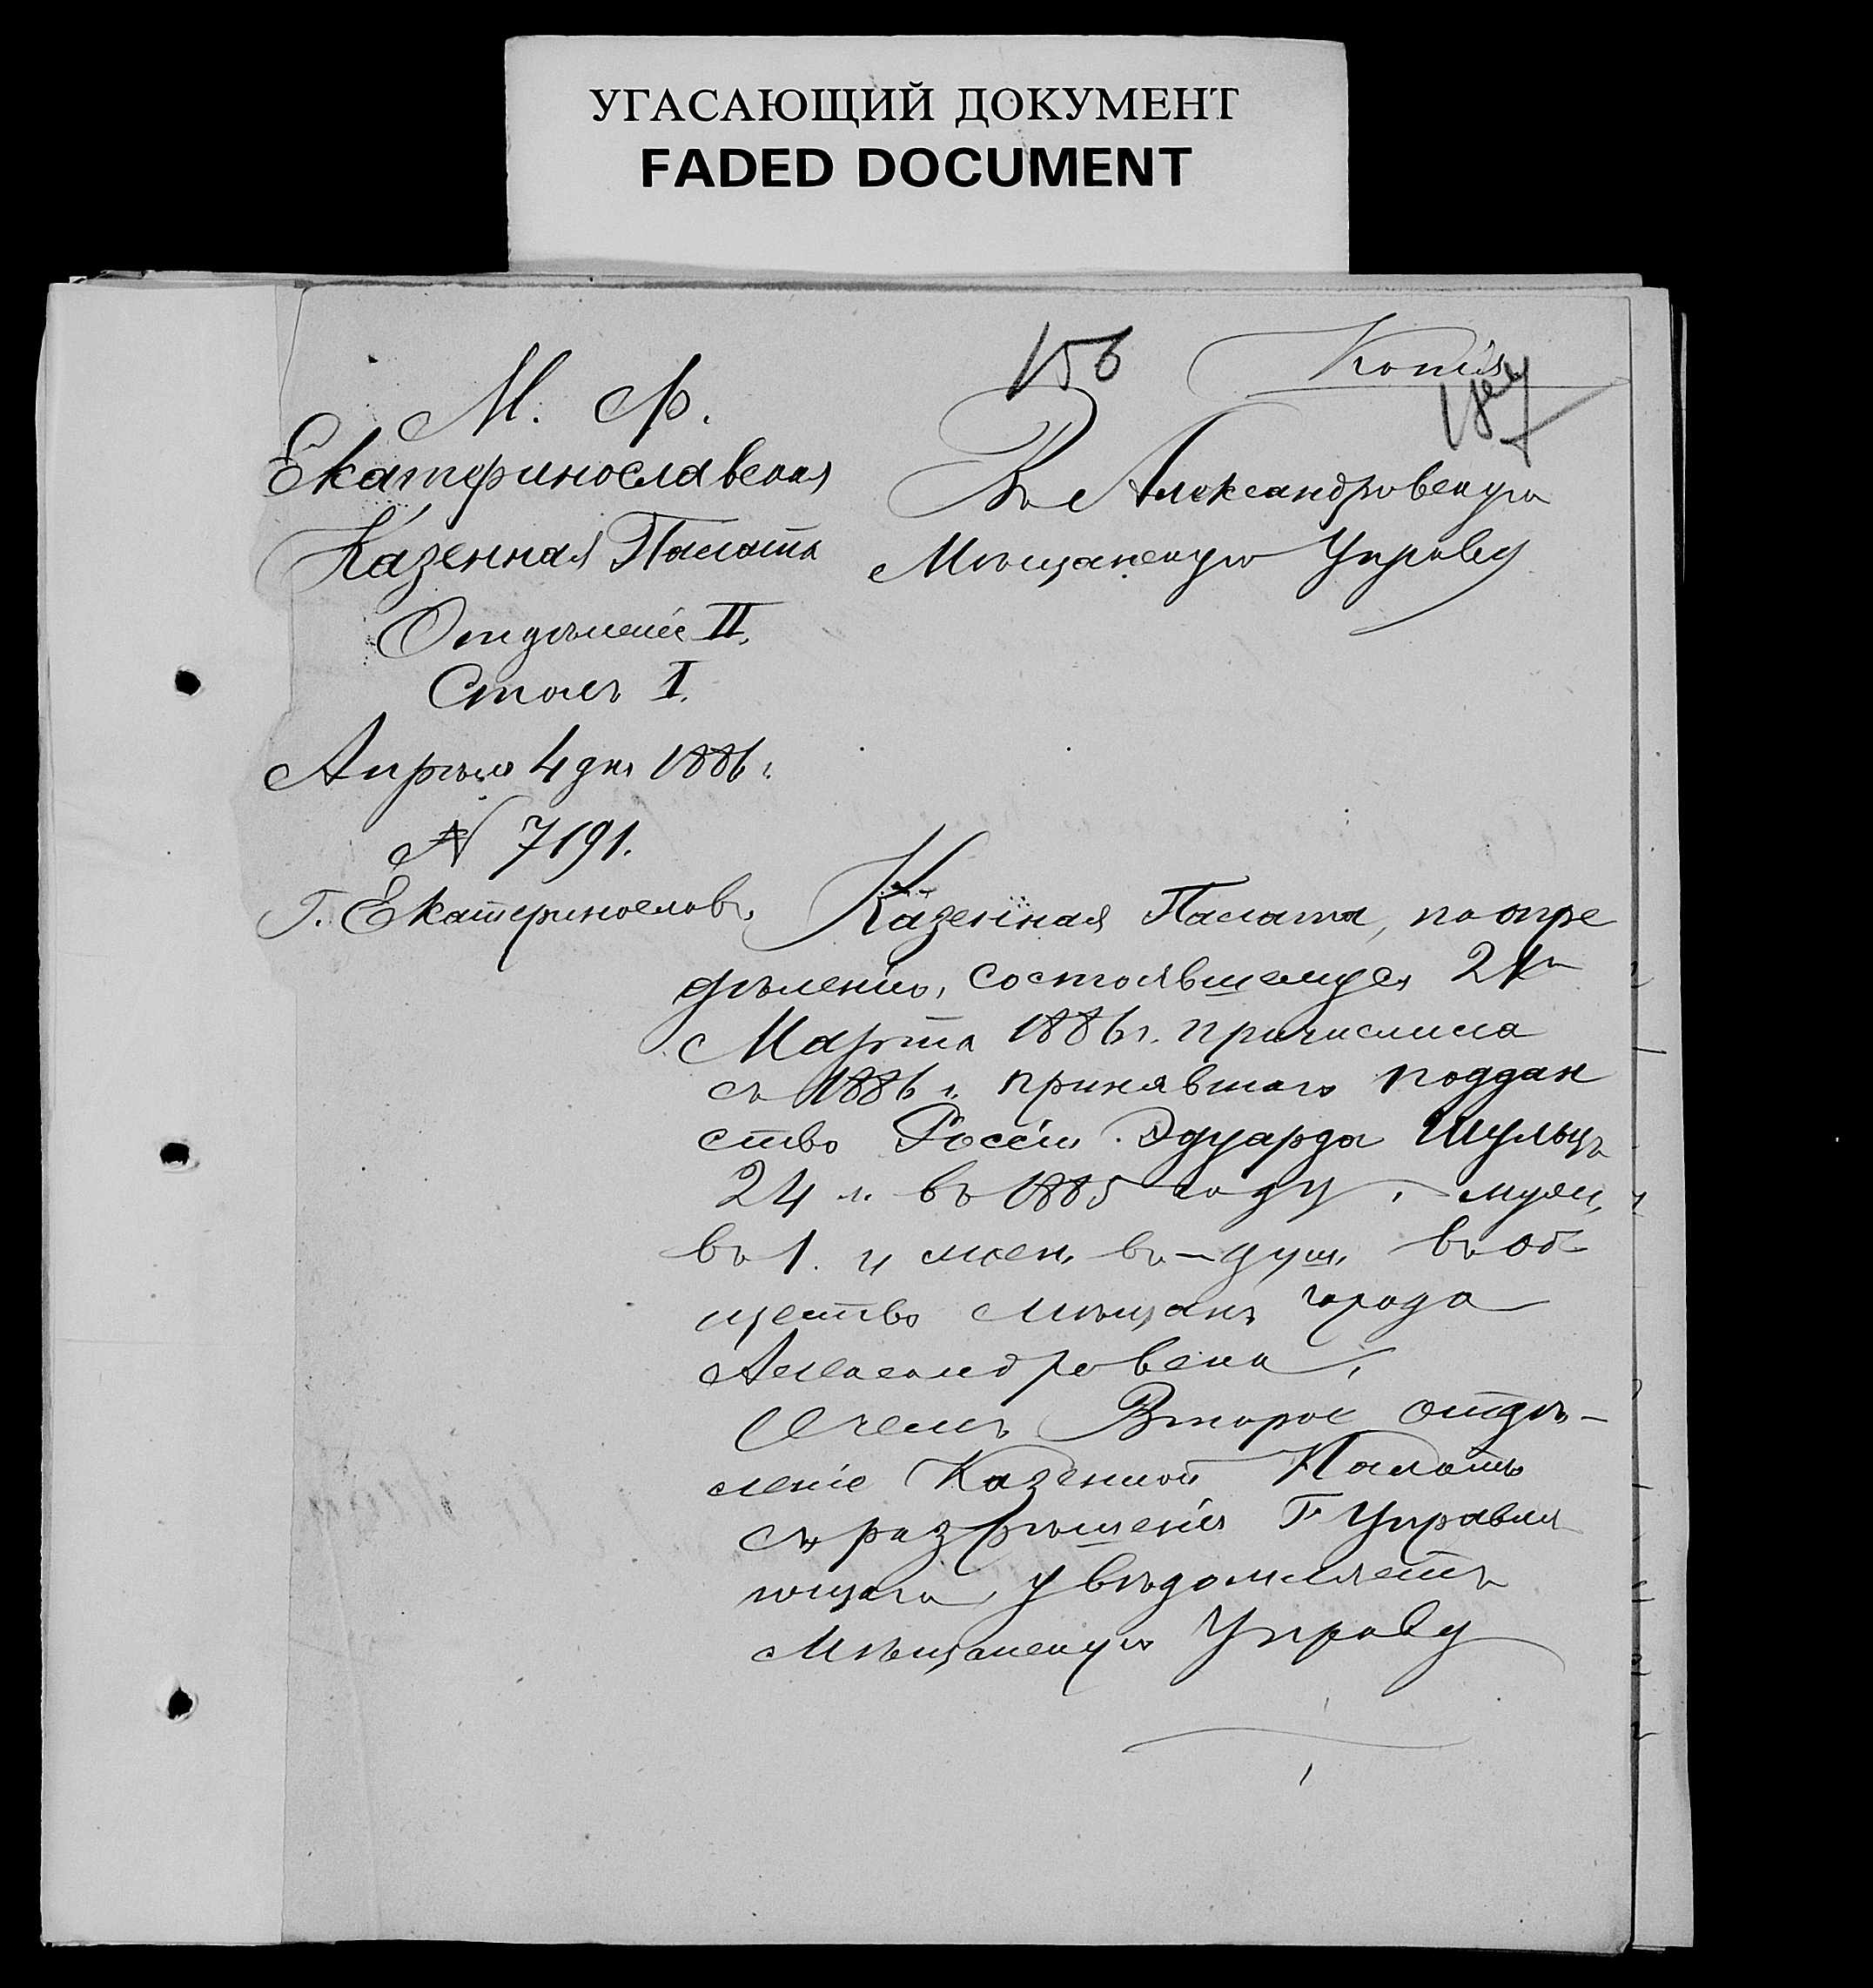 УГАСАЮЩИЙ ДОКУМЕНТ
FADED DOCUMENT
156
Копія
М. Ф.
Екатеринославская
Казенная Палата
Отдѣленіе II.
Столъ I.
Апрѣля 4 дня 1886 г.
№ 7191.
Г. Екатеринославъ
Въ Александровскую
Мѣщанскую Управу
Казенная Палата, по опре
дѣленію, состоявшемуся 21го
Марта 1886 г. причислила
съ 1886 г. принявшаго поддан
ство Россіи Эдуарда Шульцъ
24 л. въ 1885 году, муж.
въ 1. и жен. въ — душ. въ об
щество мѣщанъ города
Александровска,
О чемъ Второе отдѣ-
леніе Казенной Палаты
съ разрѣшенія Г. Управля
ющаго, увѣдомляетъ
Мѣщанскую Управу